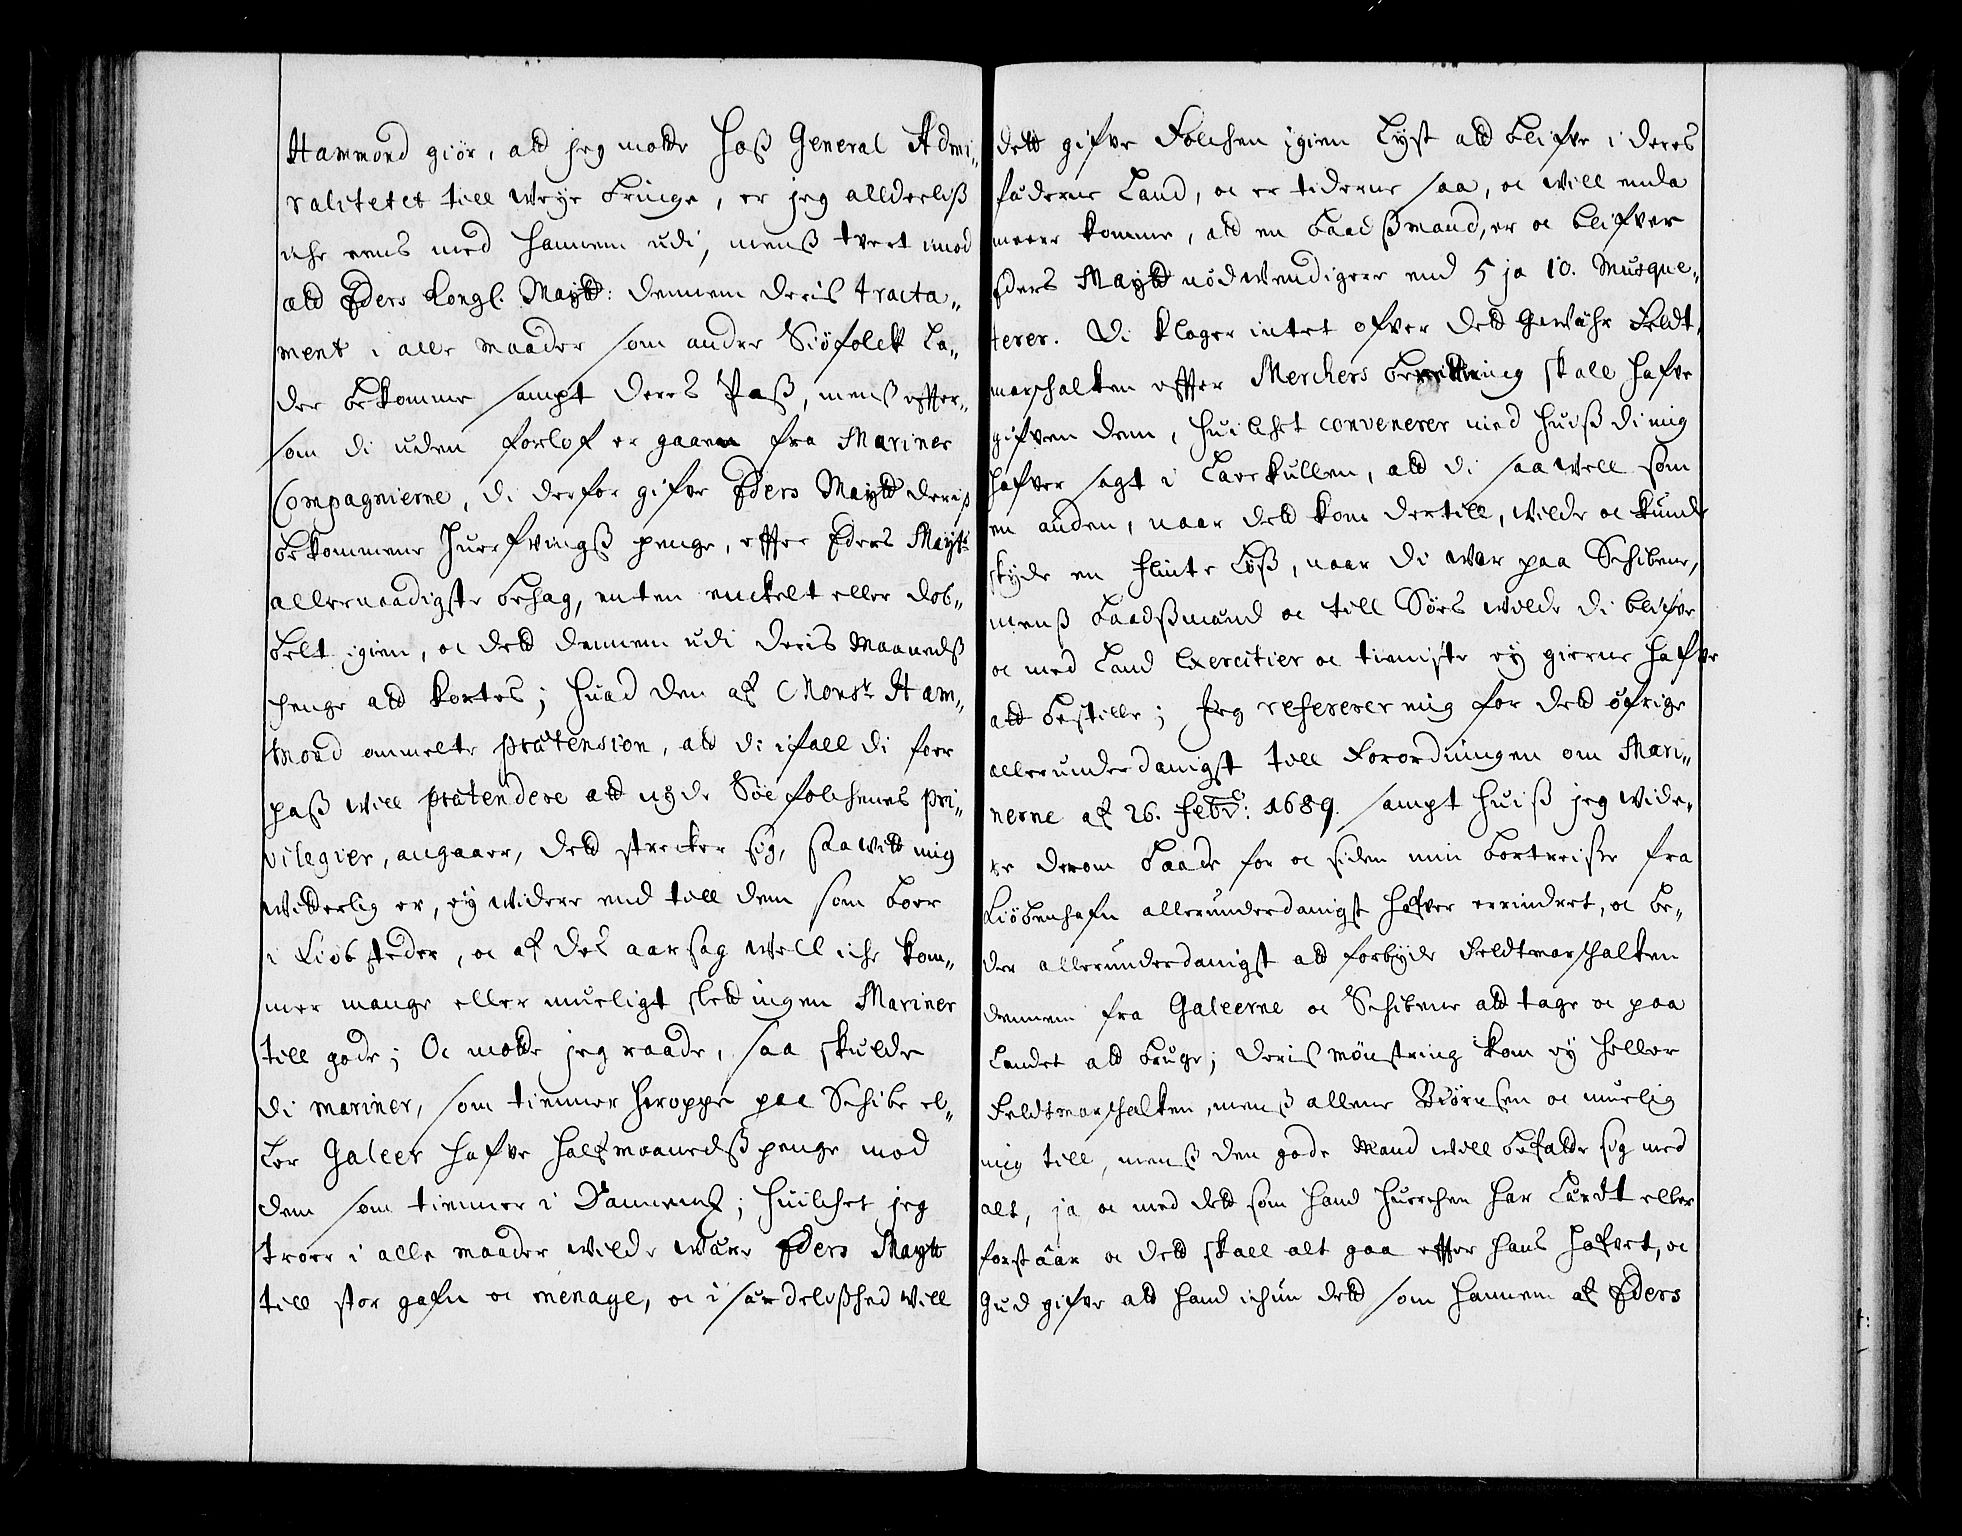 Hammond giör, att jeg motte Hoß General Admi-
ralitetet till weye bringe, er jeg allderliß
iche eens med hannem udi, menß tvert imod
att Eders Kongl. Maytt: dennem deris tracta-
ment i alle maader som andre Siöfolck La-
der bekomme sampt deres Paß, menß effter-
som di uden forlof er gaaen fra Mariner
Compagnierne, di derfor gifve Eders Maytt deriß
bekommene Huerfvingß penge, effter Eders Maytts
allernaadigste behag, enten enckelt eller dob-
belt igien, oc dett dennem udi deris Maanedß
penge att kortes; Huad den af Monsr Ham-
mond anmelte prætension, att di ifall di faar
paß will prætendere att nyde Söefolchenes pri-
vilegier, angaaer, dett strecker sig, saa witt mig
witterlig er, ey widere end till dem som boer
i Kiöbsteder, oc af des aarsag well iche kom-
mer mange eller mueligt slett ingen Mariner
till gode; Oc motte jeg raade, saa skulde
di mariner, som tienner heroppe paa Schibe el-
ler Galeer hafve half maanedß penge mod
dem som tienner i Danmarck; huilchet jeg
troer i alle maader wilde være Eders Maytt
till stor gafn oc menage, oc i særdelißhed will
dett gifve Folchen igien Lyst att blifve i deres
fäderne Land, oc er tiderne saa, oc will enda
meere komme, att en Baadßmand, er oc blifver
Eders Maytt nödwendigere end 5 ja 10. Musque-
terer. Di klager intet ofver dett Gewähr Feldt-
marschalken effter Merchers beretning skall hafve
gifven dem, huilchet convenerer med huiß di mig
hafver sagt i Laurkullen, att di saa well som
en anden, naar dett kom dertill, wilde oc kunde
skyde en Flinte Löß, naar di war paa Schibene,
menß Baadßmand oc till Söes wilde di blifve
oc med Land Exercitier oc tieniste ey gierne hafve
att bestille; Jeg refererer mig for dett öfrige
allerunderdanigst till Forordningen om Mari-
nerne af 26. Febr: 1689. sampt huiß jeg wide-
re derom baade for oc siden min bortreise fra
Kiöbenhafn allerunderdanigst hafver errindret, oc be-
der allerunderdanigst att forbyde Feldtmarschalken
dennem fra Galeerne oc Schibene att tage oc paa
Landet att bruge; deris mönstring kom ey heller
Feldtmarschalken, menß allene Biörnsen oc muelig
mig till, menß den gode Mand will befatte sig med
alt, ja oc med dett som hand huerchen har Lærdt eller
forstaar oc dett skall alt gaa effter hans hofvet, oc
Gud gifve att hand ichun dett som hannem af Eders